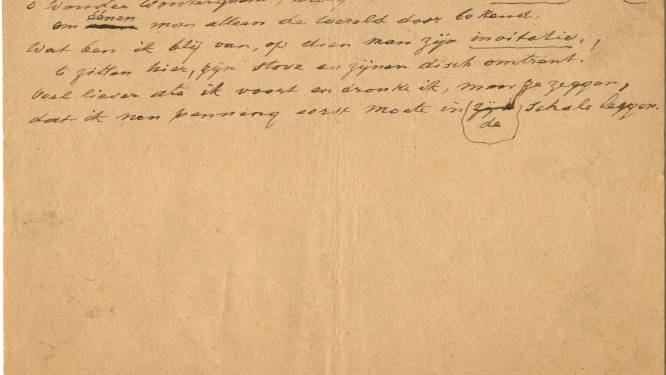 o Wonder Wonterghem,
om éénen man alleen de wereld door bekend.
Wat ben ik blij van, op dien man zijn invitatie,
te zitten hier, zijn stove en zijnen disch omtrent.
Veel liever ate ik voort en dronke ik, maar ge zegger,
dat ik nen penning eerst moete in zijn schale leggen.
de